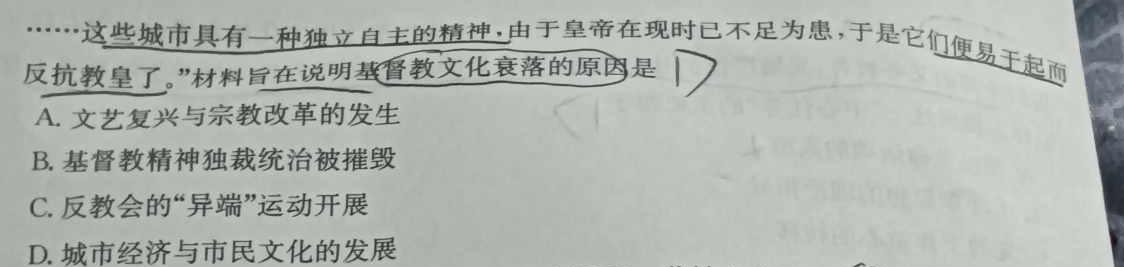 ……这些城市具有一种独立自主的精神，由于皇帝在现时已不足为患，于是它们便易于起而
反抗教皇了。”材料旨在说明基督教文化衰落的原因是
A. 文艺复兴与宗教改革的发生
B. 基督教精神独裁统治被摧毁
C. 反教会的“异端”运动开展
D. 城市经济与市民文化的发展